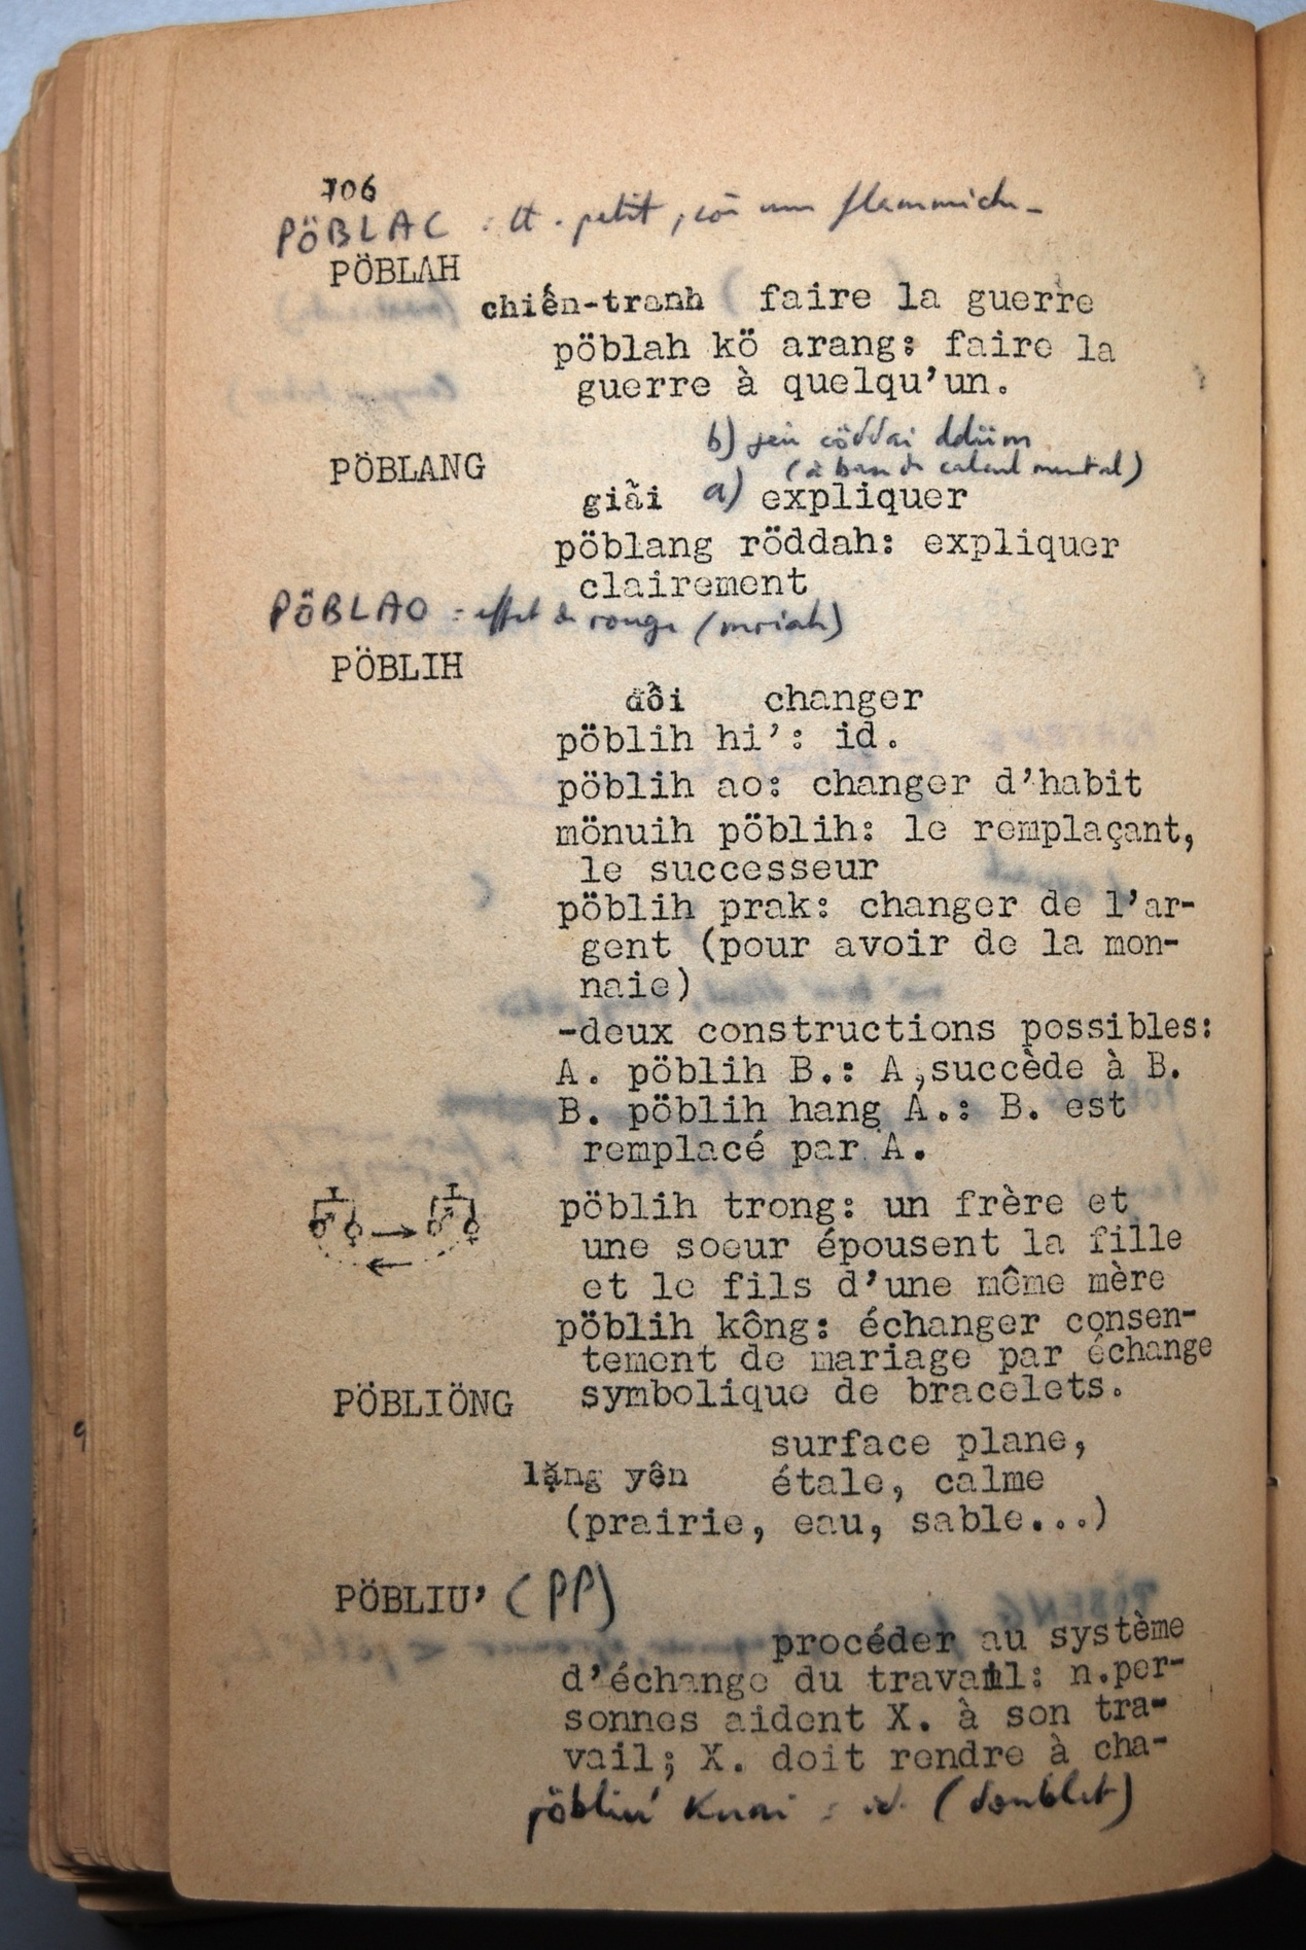 706
PÖBLAC : tt. petit, com une flammich-
PÖBLAH
chiến-tranh ( faire la guerre
pöblah kö arang: faire la
guerre à quelqu'un.
b) jeu cöddai ddüm
(à base de calcul mental)
PÖBLANG
giải a) expliquer
pöblang röddah: expliquer
clairement
PÖBLAO : effet de rouge (mriah)
PÖBLIH
đổi changer
pöblih hi': id.
pöblih ao: changer d'habit
mönuih pöblih: le remplaçant,
le successeur
pöblih prak: changer de l'ar-
gent (pour avoir de la mon-
naie)
-deux constructions possibles:
A. pöblih B.: A,succède à B.
B. pöblih hang A.: B. est
remplacé par A.
pöblih trong: un frère et
une soeur épousent la fille
et le fils d'une même mère
pöblih kông: échanger consen-
tement de mariage par échange
symbolique de bracelets.
PÖBLIÖNG
surface plane,
lặng yên étale, calme
(prairie, eau, sable...)
PÖBLIU' (PP)
procéder au système
d'échange du travail: n.per-
sonnes aident X. à son tra-
vail; X. doit rendre à cha-
pöbliu' Knai : id. (doublet)